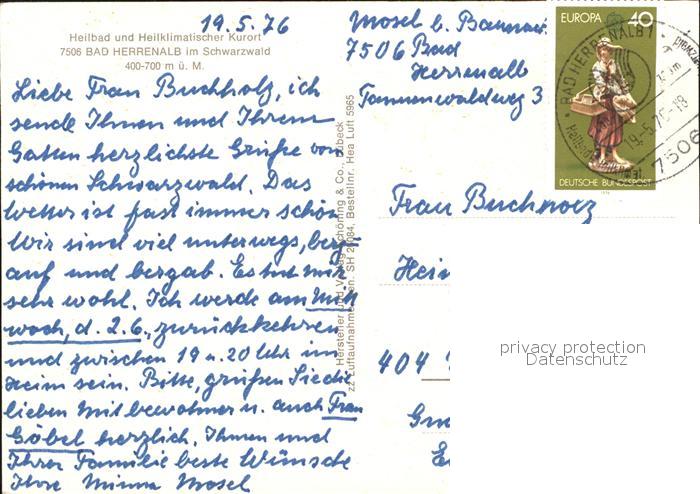 19.5.76
Heilbad und Heilklimatischer Kurort
7506 BAD HERRENALB im Schwarzwald
400-700 m ü. M.
Liebe Frau Buchholz, ich
sende Ihnen und Ihrem
Gatten herzlichste Grüße vom
schönen Schwarzwald. Das
Wetter ist fast immer schön
Wir sind viel unterwegs, berg-
auf und bergab. Es tut mir
sehr wohl. Ich werde am Mitt
woch, d. 2.6., zurückkehren
und zwischen 19 u. 20 Uhr im
Heim sein. Bitte, grüßen Sie die
lieben Mitbewohner u. auch Frau
Göbel herzlich. Ihnen und
Ihrer Familie beste Wünsche
Ihre Minna Mosel
Hersteller und Verlag Schöning & Co., Lübeck
Luftaufnahme Bestellnr. Hea Luft 5965
Mosel b. Baumann
7506 Bad
Herrenalb
Tannenwaldweg 3
EUROPA 40
DEUTSCHE BUNDESPOST
BAD HERRENALB 1
19.-5.76-18
7506
Frau Buchholz
Heim
404
privacy protection
Datenschutz